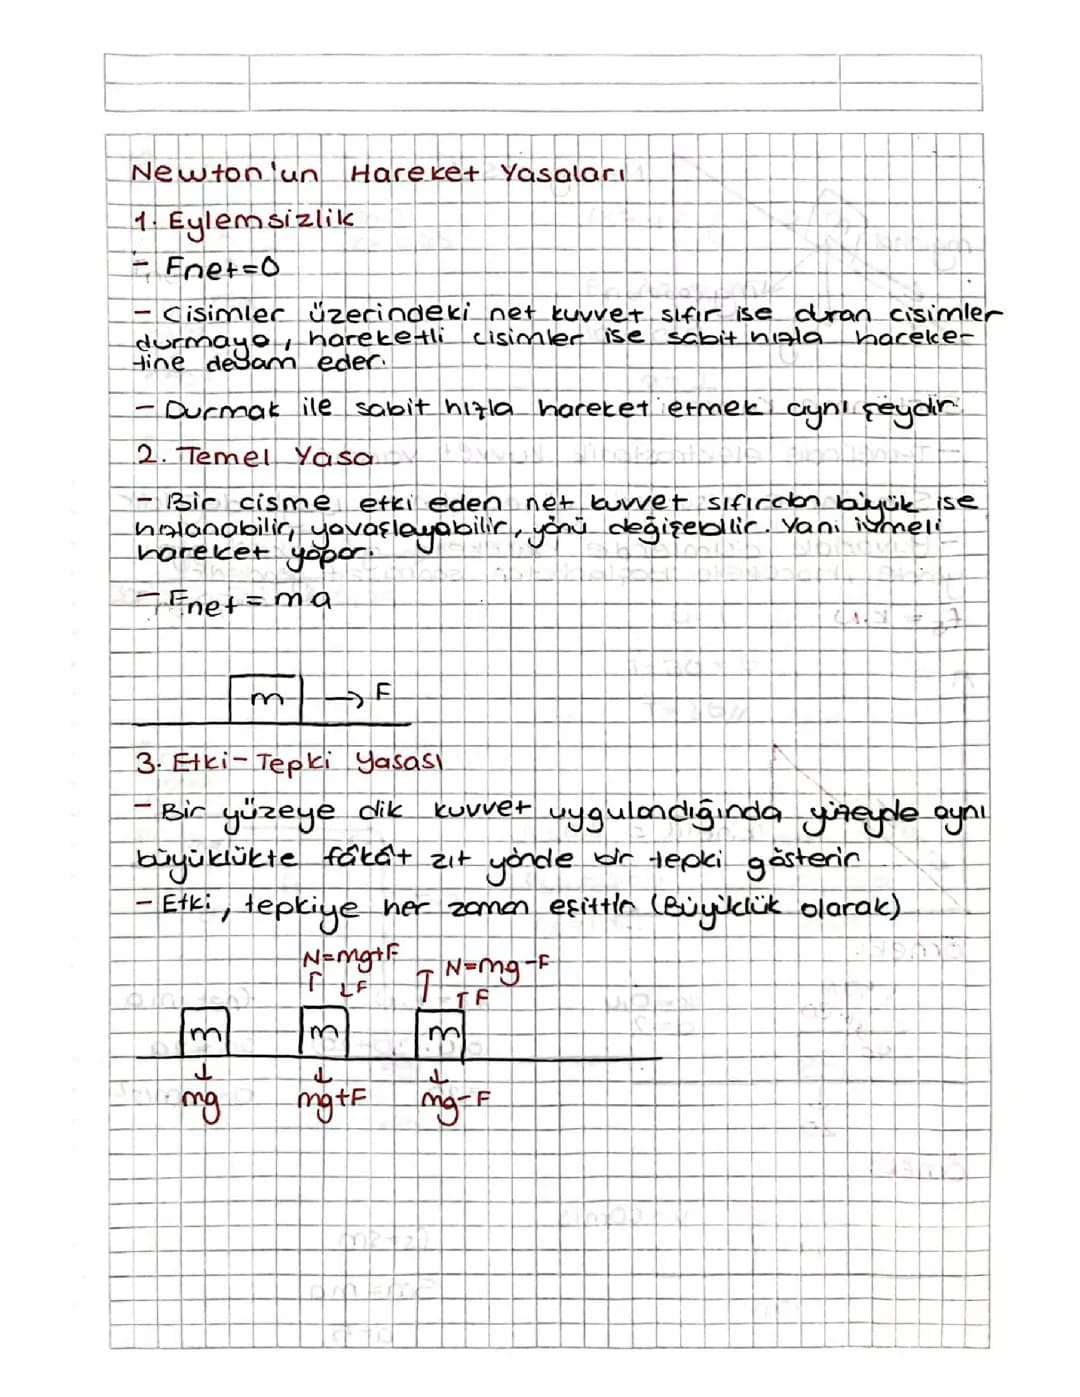 Newton'un Hareket Yasaları
1. Eylemsizlik
- Fnet=0
- Cisimler üzerindeki net kuvvet sıfır ise duran cisimler
durmaya, hareketli cisimler ise sabit hızla hareke-
tine devam eder.
- Durmak ile sabit hızla hareket etmek aynı şeydir.
2. Temel Yasa
- Bir cisme etki eden net kuvvet sıfırdan büyük ise
hızlanabilir, yavaşlayabilir, yönü değişebilir. Yani ivmeli
hareket yapar.
- Fnet = ma
m → F
3. Etki-Tepki Yasası
- Bir yüzeye dik kuvvet uygulandığında yüzeyde aynı
büyüklükte fakat zıt yönde bir tepki gösterir
- Etki, tepkiye her zaman eşittir (Büyüklük olarak)
N=mg+F N=mg-F
↑ ↓F ↑ ↑F
m m m
↓ ↓ ↓
mg mg+F mg-F